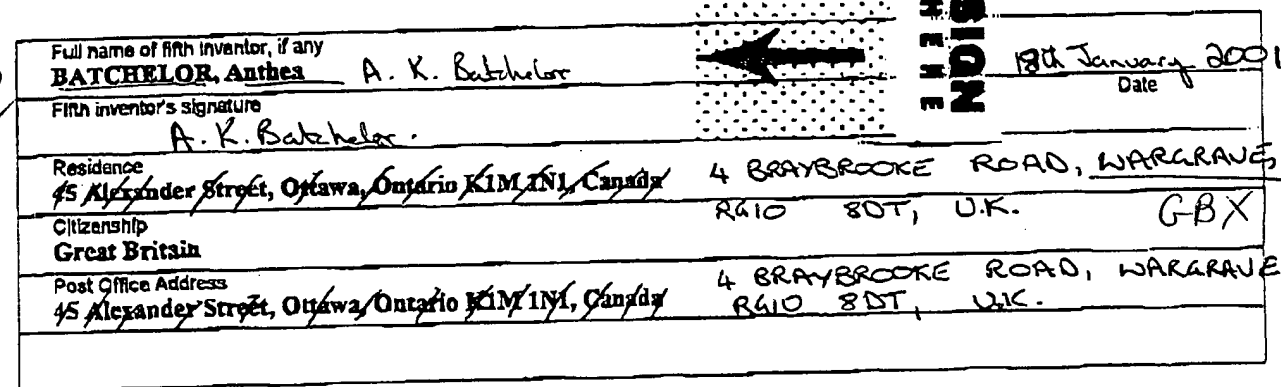 SIGN
HERE
Full name of fifth inventor, if any
BATCHELOR, Anthea A. K. Batchelor 18th January 2001
Date
Fifth inventor's signature
A. K. Batchelor.
Residence
45 Alexander Street, Ottawa, Ontario K1M 1N1, Canada 4 BRAYBROOKE ROAD, WARGRAVE
RG10 8DT, U.K. GBX
Citizenship
Great Britain
Post Office Address
45 Alexander Street, Ottawa, Ontario K1M 1N1, Canada 4 BRAYBROOKE ROAD, WARGRAVE
RG10 8DT, U.K.